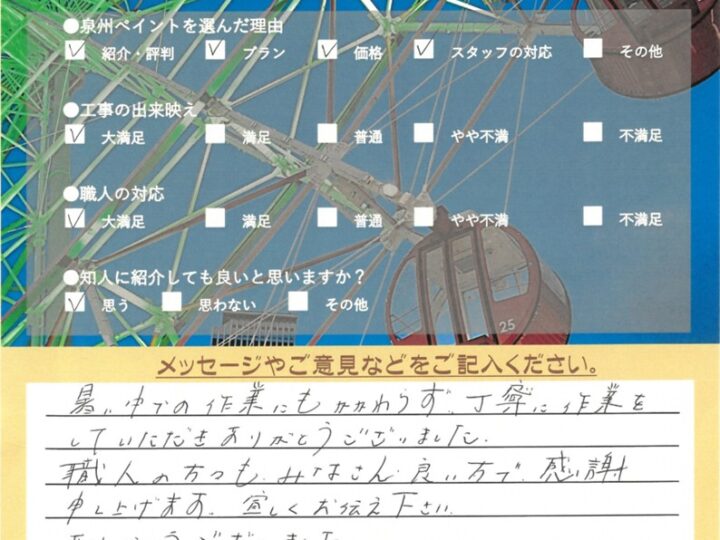 ●泉州ペイントを選んだ理由
☑ 紹介・評判 ☑ プラン ☑ 価格 ☑ スタッフの対応 □ その他
●工事の出来映え
☑ 大満足 □ 満足 □ 普通 □ やや不満 □ 不満足
●職人の対応
☑ 大満足 □ 満足 □ 普通 □ やや不満 □ 不満足
●知人に紹介しても良いと思いますか？
☑ 思う □ 思わない □ その他
25
メッセージやご意見などをご記入ください。
暑い中での作業にもかかわらず、丁寧に作業を
していただきありがとうございました。
職人の方々も、みなさん良い方で、感謝
申し上げます。宜しくお伝え下さい。